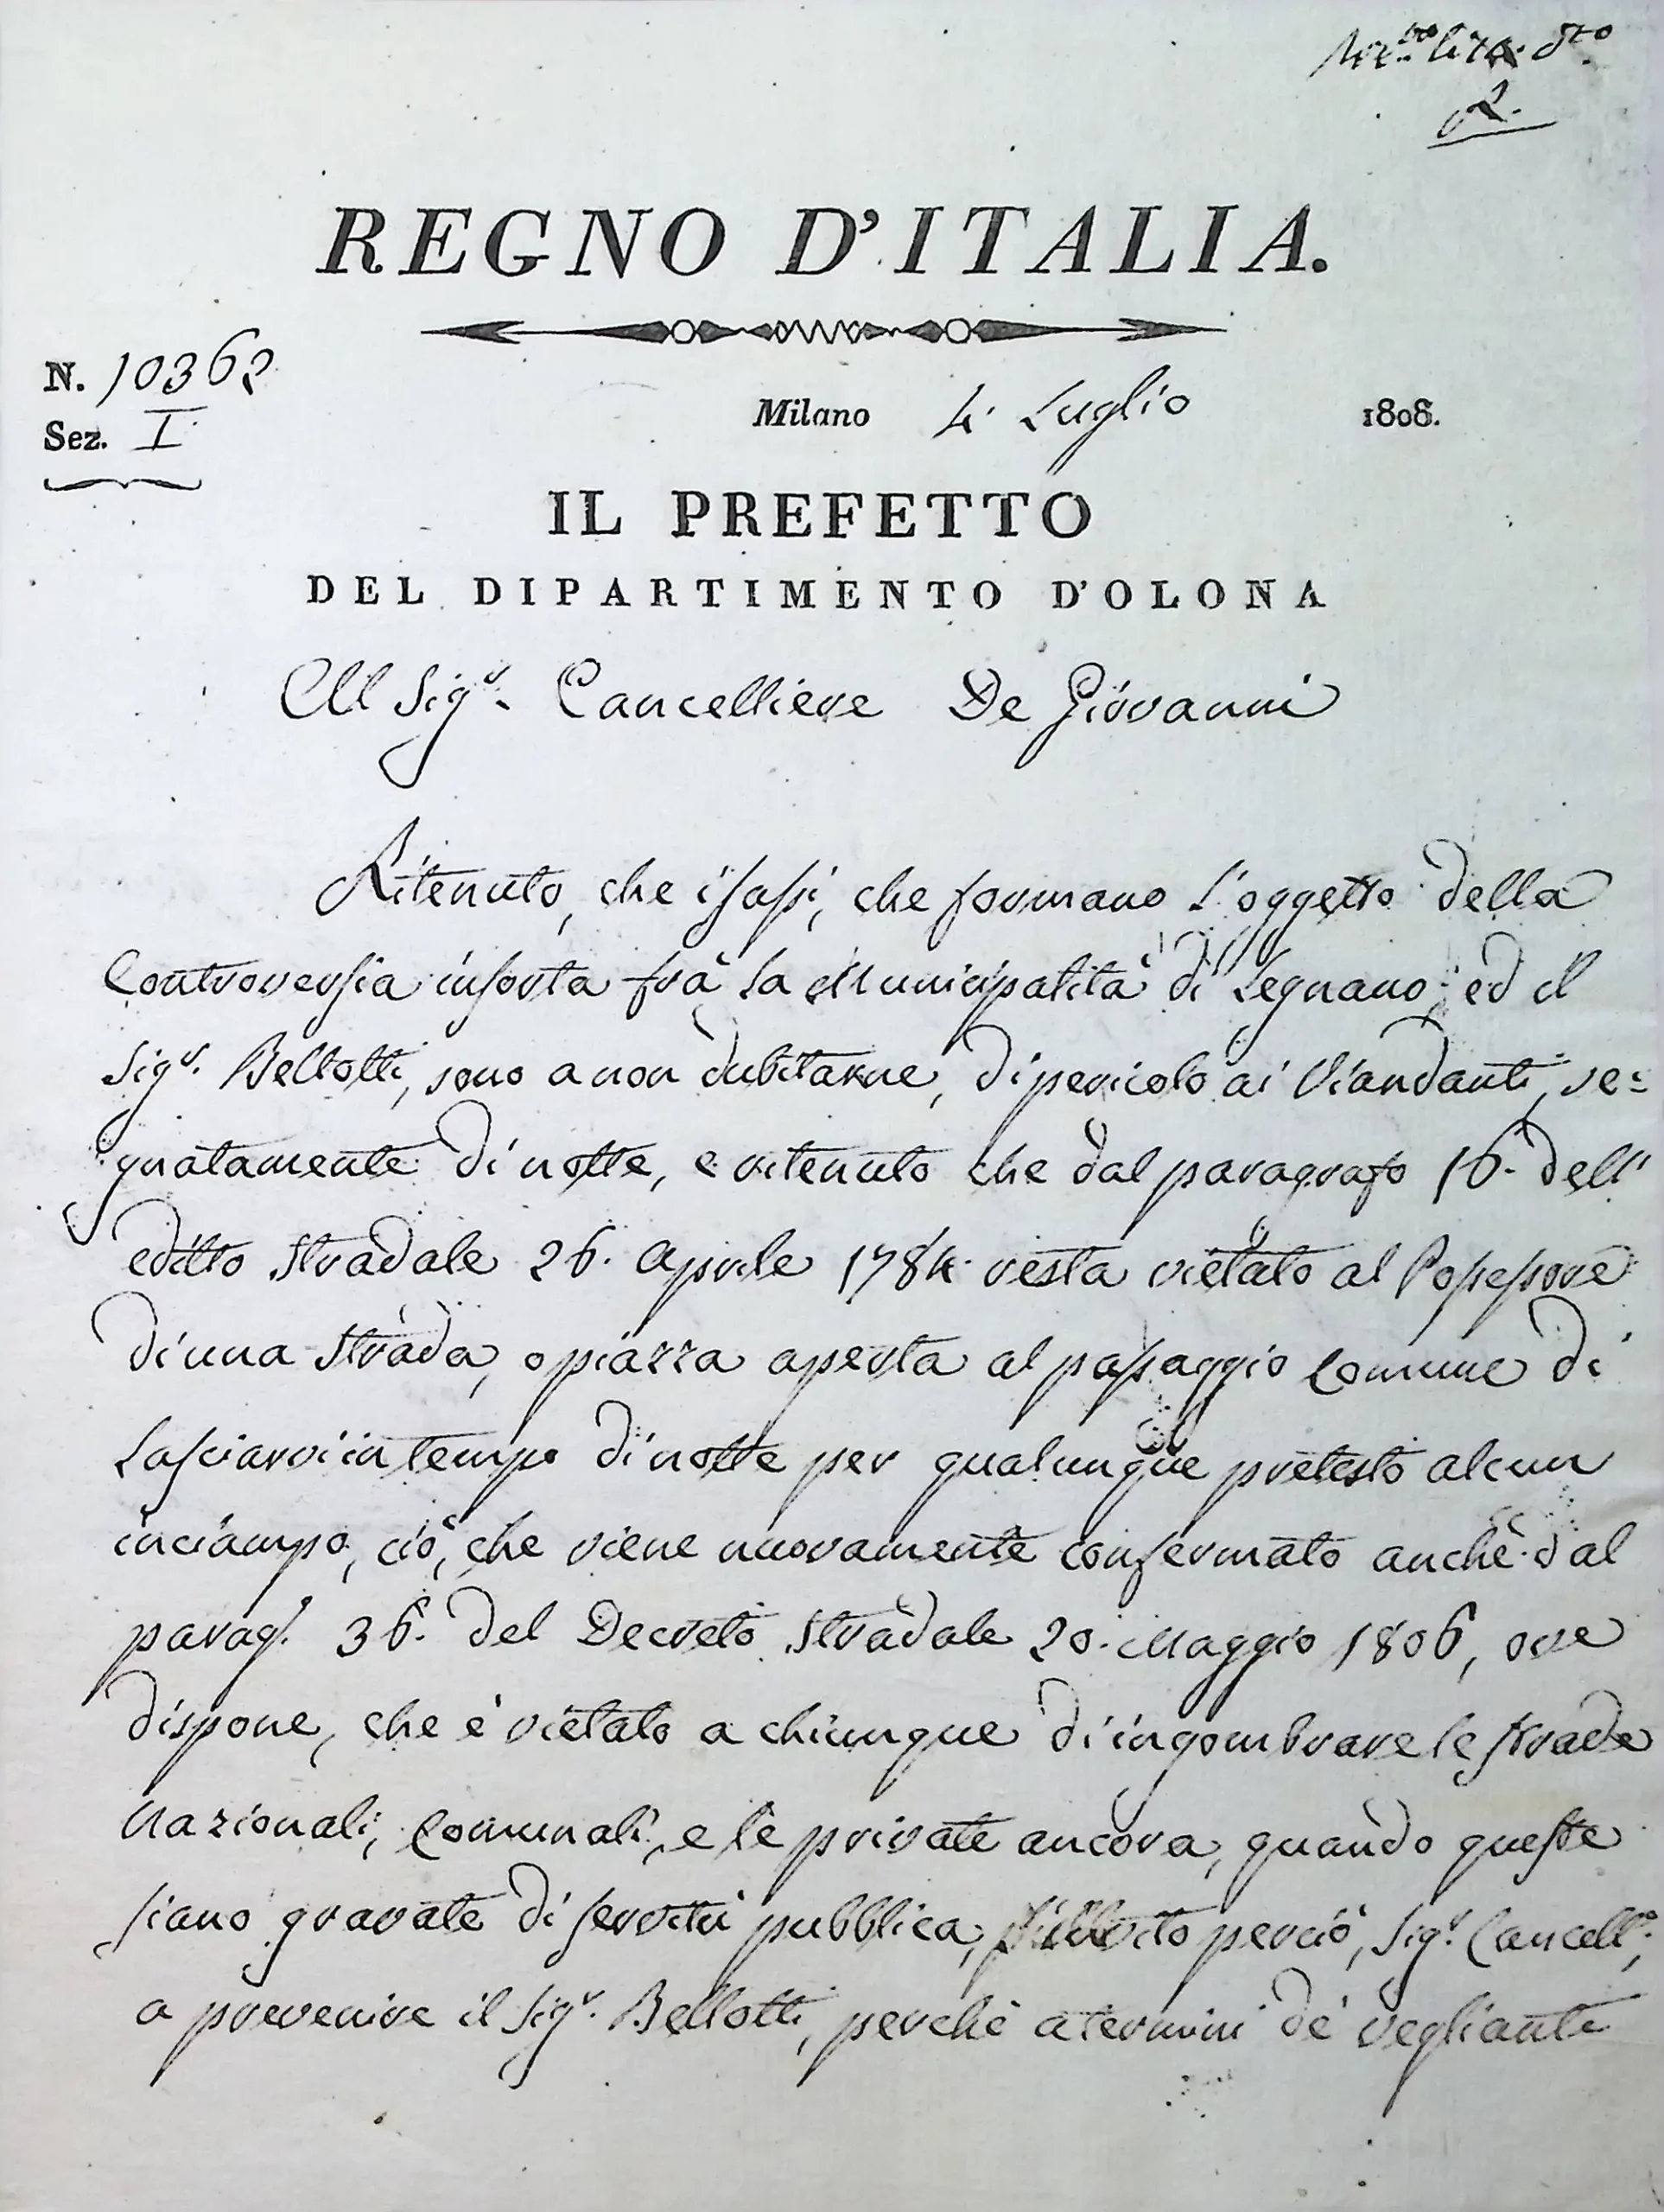 2.
REGNO D'ITALIA.
N. 10362
Sez. I
Milano 4. Luglio 1808.
IL PREFETTO
DEL DIPARTIMENTO D'OLONA
Al Sigr. Cancelliere De Giovanni
Ritenuto, che i sassi, che formano l'oggetto della
Controversia insorta frà la Municipalità di Legnano, ed il
Sigr. Bellotti, sono a non dubitarne, di pericolo ai Viandanti, se=
gnatamente di notte, e ritenuto che dal paragrafo 16. dell'
editto Stradale 26. Aprile 1784. resta vietato al Possessore
di una Strada, o piazza aperta al passaggio Comune di
lasciarvi in tempo di notte per qualunque pretesto alcun
inciampo, ciò, che viene nuovamente confermato anche dal
parag. 36. del Decreto Stradale 20. Maggio 1806, ove
dispone, che è vietato a chiunque di ingombrare le strade
Nazionali, Comunali, e le private ancora, quando queste
siano gravate di servitù pubblica, perciò, Sigr. Cancelle,
a prevenire il Sigr. Bellotti, perchè a termini de' veglianti